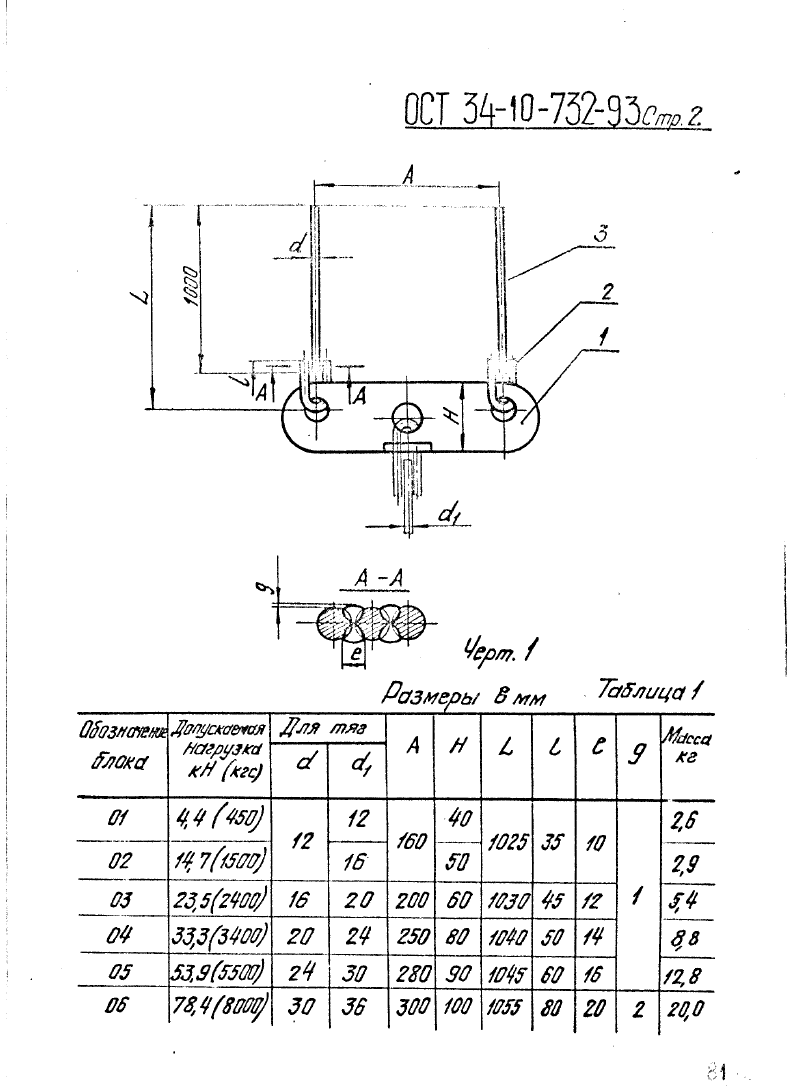 ОСТ 34-10-732-93 Стр. 2.
A
d
3
L
1000
2
1
l
A
A
H
d₁
A - A
g
e
Черт. 1
Размеры в мм
Таблица 1
Обозначение блока | Допускаемая нагрузка кН (кгс) | Для тяг d | d₁ | A | H | L | l | e | g | Масса кг
01 | 4,4 (450) | 12 | 12 | 160 | 40 | 1025 | 35 | 10 | 1 | 2,6
02 | 14,7 (1500) | 16 | 50 | 2,9
03 | 23,5 (2400) | 16 | 20 | 200 | 60 | 1030 | 45 | 12 | 5,4
04 | 33,3 (3400) | 20 | 24 | 250 | 80 | 1040 | 50 | 14 | 8,8
05 | 53,9 (5500) | 24 | 30 | 280 | 90 | 1045 | 60 | 16 | 12,8
06 | 78,4 (8000) | 30 | 36 | 300 | 100 | 1055 | 80 | 20 | 2 | 20,0
81